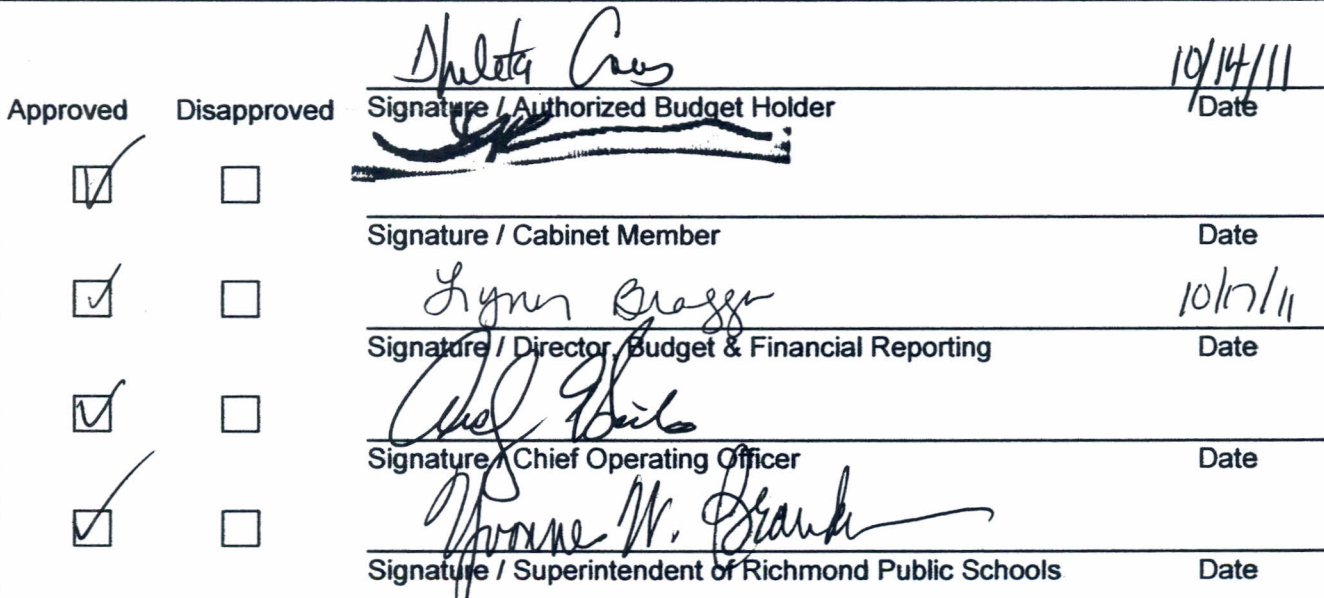 10/14/11
Approved Disapproved Signature / Authorized Budget Holder Date
Signature / Cabinet Member Date
10/17/11
Signature / Director, Budget & Financial Reporting Date
Signature / Chief Operating Officer Date
Yvonne W. Brandon
Signature / Superintendent of Richmond Public Schools Date